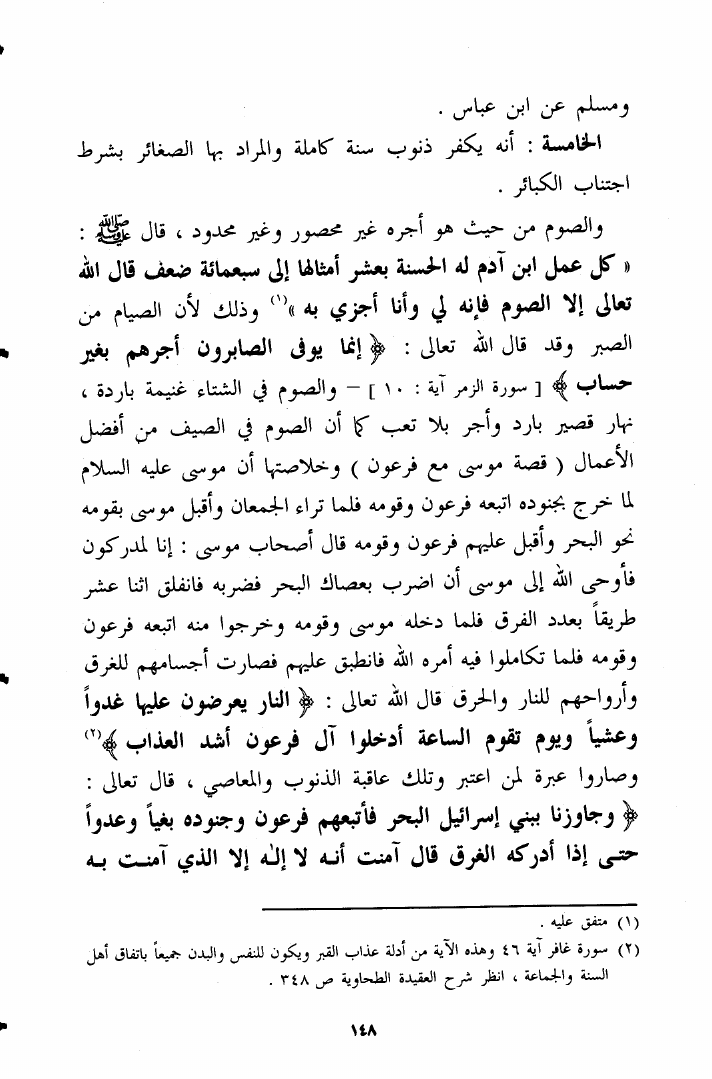 ومسلم عن ابن عباس .
الخامسة : أنه يكفر ذنوب سنة كاملة والمراد بها الصغائر بشرط
اجتناب الكبائر .
والصوم من حيث هو أجره غير محصور وغير محدود ، قال ﷺ :
« كل عمل ابن آدم له الحسنة بعشر أمثالها إلى سبعمائة ضعف قال الله
تعالى إلا الصوم فإنه لي وأنا أجزي به »(١) وذلك لأن الصيام من
الصبر وقد قال الله تعالى : ﴿ إنما يوفى الصابرون أجرهم بغير
حساب ﴾ [ سورة الزمر آية : ١٠ ] – والصوم في الشتاء غنيمة باردة ،
نهار قصير بارد وأجر بلا تعب كما أن الصوم في الصيف من أفضل
الأعمال ( قصة موسى مع فرعون ) وخلاصتها أن موسى عليه السلام
لما خرج بجنوده اتبعه فرعون وقومه فلما تراء الجمعان وأقبل موسى بقومه
نحو البحر وأقبل عليهم فرعون وقومه قال أصحاب موسى : إنا لمدركون
فأوحى الله إلى موسى أن اضرب بعصاك البحر فضربه فانفلق اثنا عشر
طريقاً بعدد الفرق فلما دخله موسى وقومه وخرجوا منه اتبعه فرعون
وقومه فلما تكاملوا فيه أمره الله فانطبق عليهم فصارت أجسامهم للغرق
وأرواحهم للنار والحرق قال الله تعالى : ﴿ النار يعرضون عليها غدواً
وعشياً ويوم تقوم الساعة أدخلوا آل فرعون أشد العذاب ﴾(٢)
وصاروا عبرة لمن اعتبر وتلك عاقبة الذنوب والمعاصي ، قال تعالى :
﴿ وجاوزنا ببني إسرائيل البحر فأتبعهم فرعون وجنوده بغياً وعدواً
حتـى إذا أدركه الغرق قال آمنت أنـه لا إلـٰه إلا الذي آمنـت بـه
(١) متفق عليه .
(٢) سورة غافر آية ٤٦ وهذه الآية من أدلة عذاب القبر ويكون للنفس والبدن جميعاً باتفاق أهل
السنة والجماعة ، انظر شرح العقيدة الطحاوية ص ٣٤٨ .
١٤٨